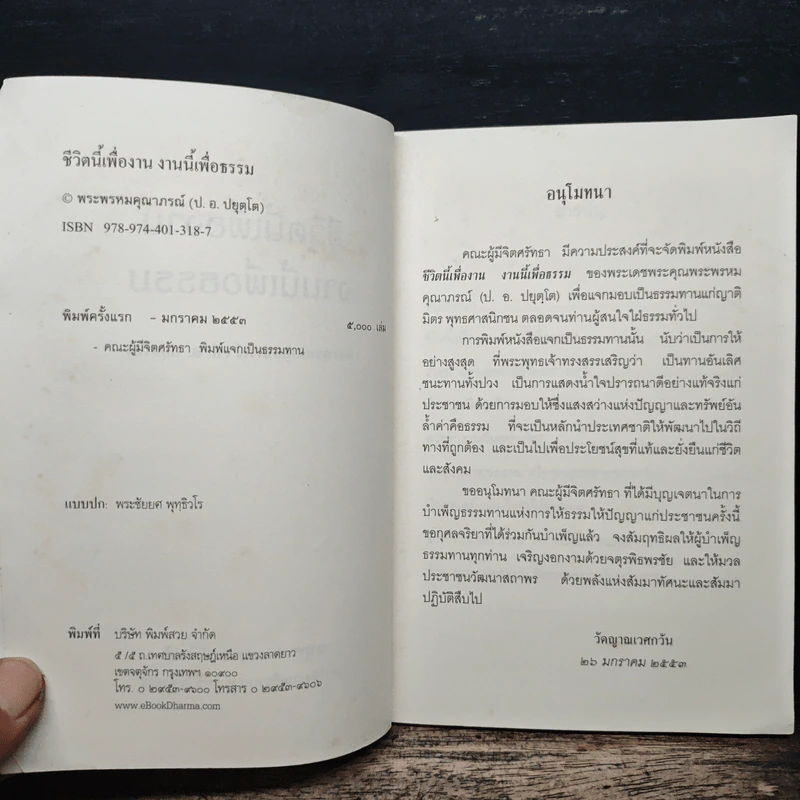 ชีวิตนี้เพื่องาน งานนี้เพื่อธรรม
© พระพรหมคุณาภรณ์ (ป. อ. ปยุตฺโต)
ISBN 978-974-401-318-7
พิมพ์ครั้งแรก - มกราคม ๒๕๕๓ ๕,๐๐๐ เล่ม
- คณะผู้มีจิตศรัทธา พิมพ์แจกเป็นธรรมทาน
แบบปก: พระชัยยศ พุทฺธิวโร
พิมพ์ที่ บริษัท พิมพ์สวย จำกัด
๕ /๕ ถ.เทศบาลรังสฤษฎ์เหนือ แขวงลาดยาว
เขตจตุจักร กรุงเทพฯ ๑๐๙๐๐
โทร. ๐ ๒๙๕๓-๙๖๐๐ โทรสาร ๐ ๒๙๕๓-๙๖๐๖
www.eBookDharma.com
อนุโมทนา
คณะผู้มีจิตศรัทธา มีความประสงค์ที่จะจัดพิมพ์หนังสือ
ชีวิตนี้เพื่องาน งานนี้เพื่อธรรม ของพระเดชพระคุณพระพรหม
คุณาภรณ์ (ป. อ. ปยุตฺโต) เพื่อแจกมอบเป็นธรรมทานแก่ญาติ
มิตร พุทธศาสนิกชน ตลอดจนท่านผู้สนใจใฝ่ธรรมทั่วไป
การพิมพ์หนังสือแจกเป็นธรรมทานนั้น นับว่าเป็นการให้
อย่างสูงสุด ที่พระพุทธเจ้าทรงสรรเสริญว่า เป็นทานอันเลิศ
ชนะทานทั้งปวง เป็นการแสดงน้ำใจปรารถนาดีอย่างแท้จริงแก่
ประชาชน ด้วยการมอบให้ซึ่งแสงสว่างแห่งปัญญาและทรัพย์อัน
ล้ำค่าคือธรรม ที่จะเป็นหลักนำประเทศชาติให้พัฒนาไปในวิถี
ทางที่ถูกต้อง และเป็นไปเพื่อประโยชน์สุขที่แท้และยั่งยืนแก่ชีวิต
และสังคม
ขออนุโมทนา คณะผู้มีจิตศรัทธา ที่ได้มีบุญเจตนาในการ
บำเพ็ญธรรมทานแห่งการให้ธรรมให้ปัญญาแก่ประชาชนครั้งนี้
ขอกุศลจริยาที่ได้ร่วมกันบำเพ็ญแล้ว จงสัมฤทธิผลให้ผู้บำเพ็ญ
ธรรมทานทุกท่าน เจริญงอกงามด้วยจตุรพิธพรชัย และให้มวล
ประชาชนวัฒนาสถาพร ด้วยพลังแห่งสัมมาทัศนะและสัมมา
ปฏิบัติสืบไป
วัดญาณเวศกวัน
๒๖ มกราคม ๒๕๕๓